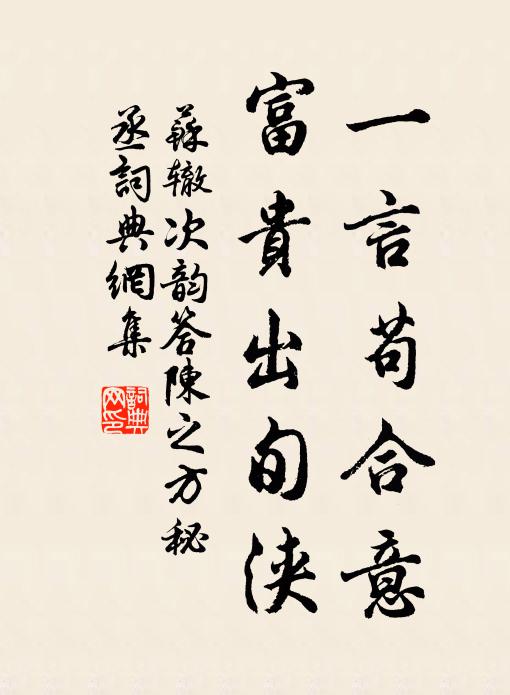 一言苟合意
富貴出旬浹
蘇辙次韵答陳之方秘
丞詞典網集
詞典网印